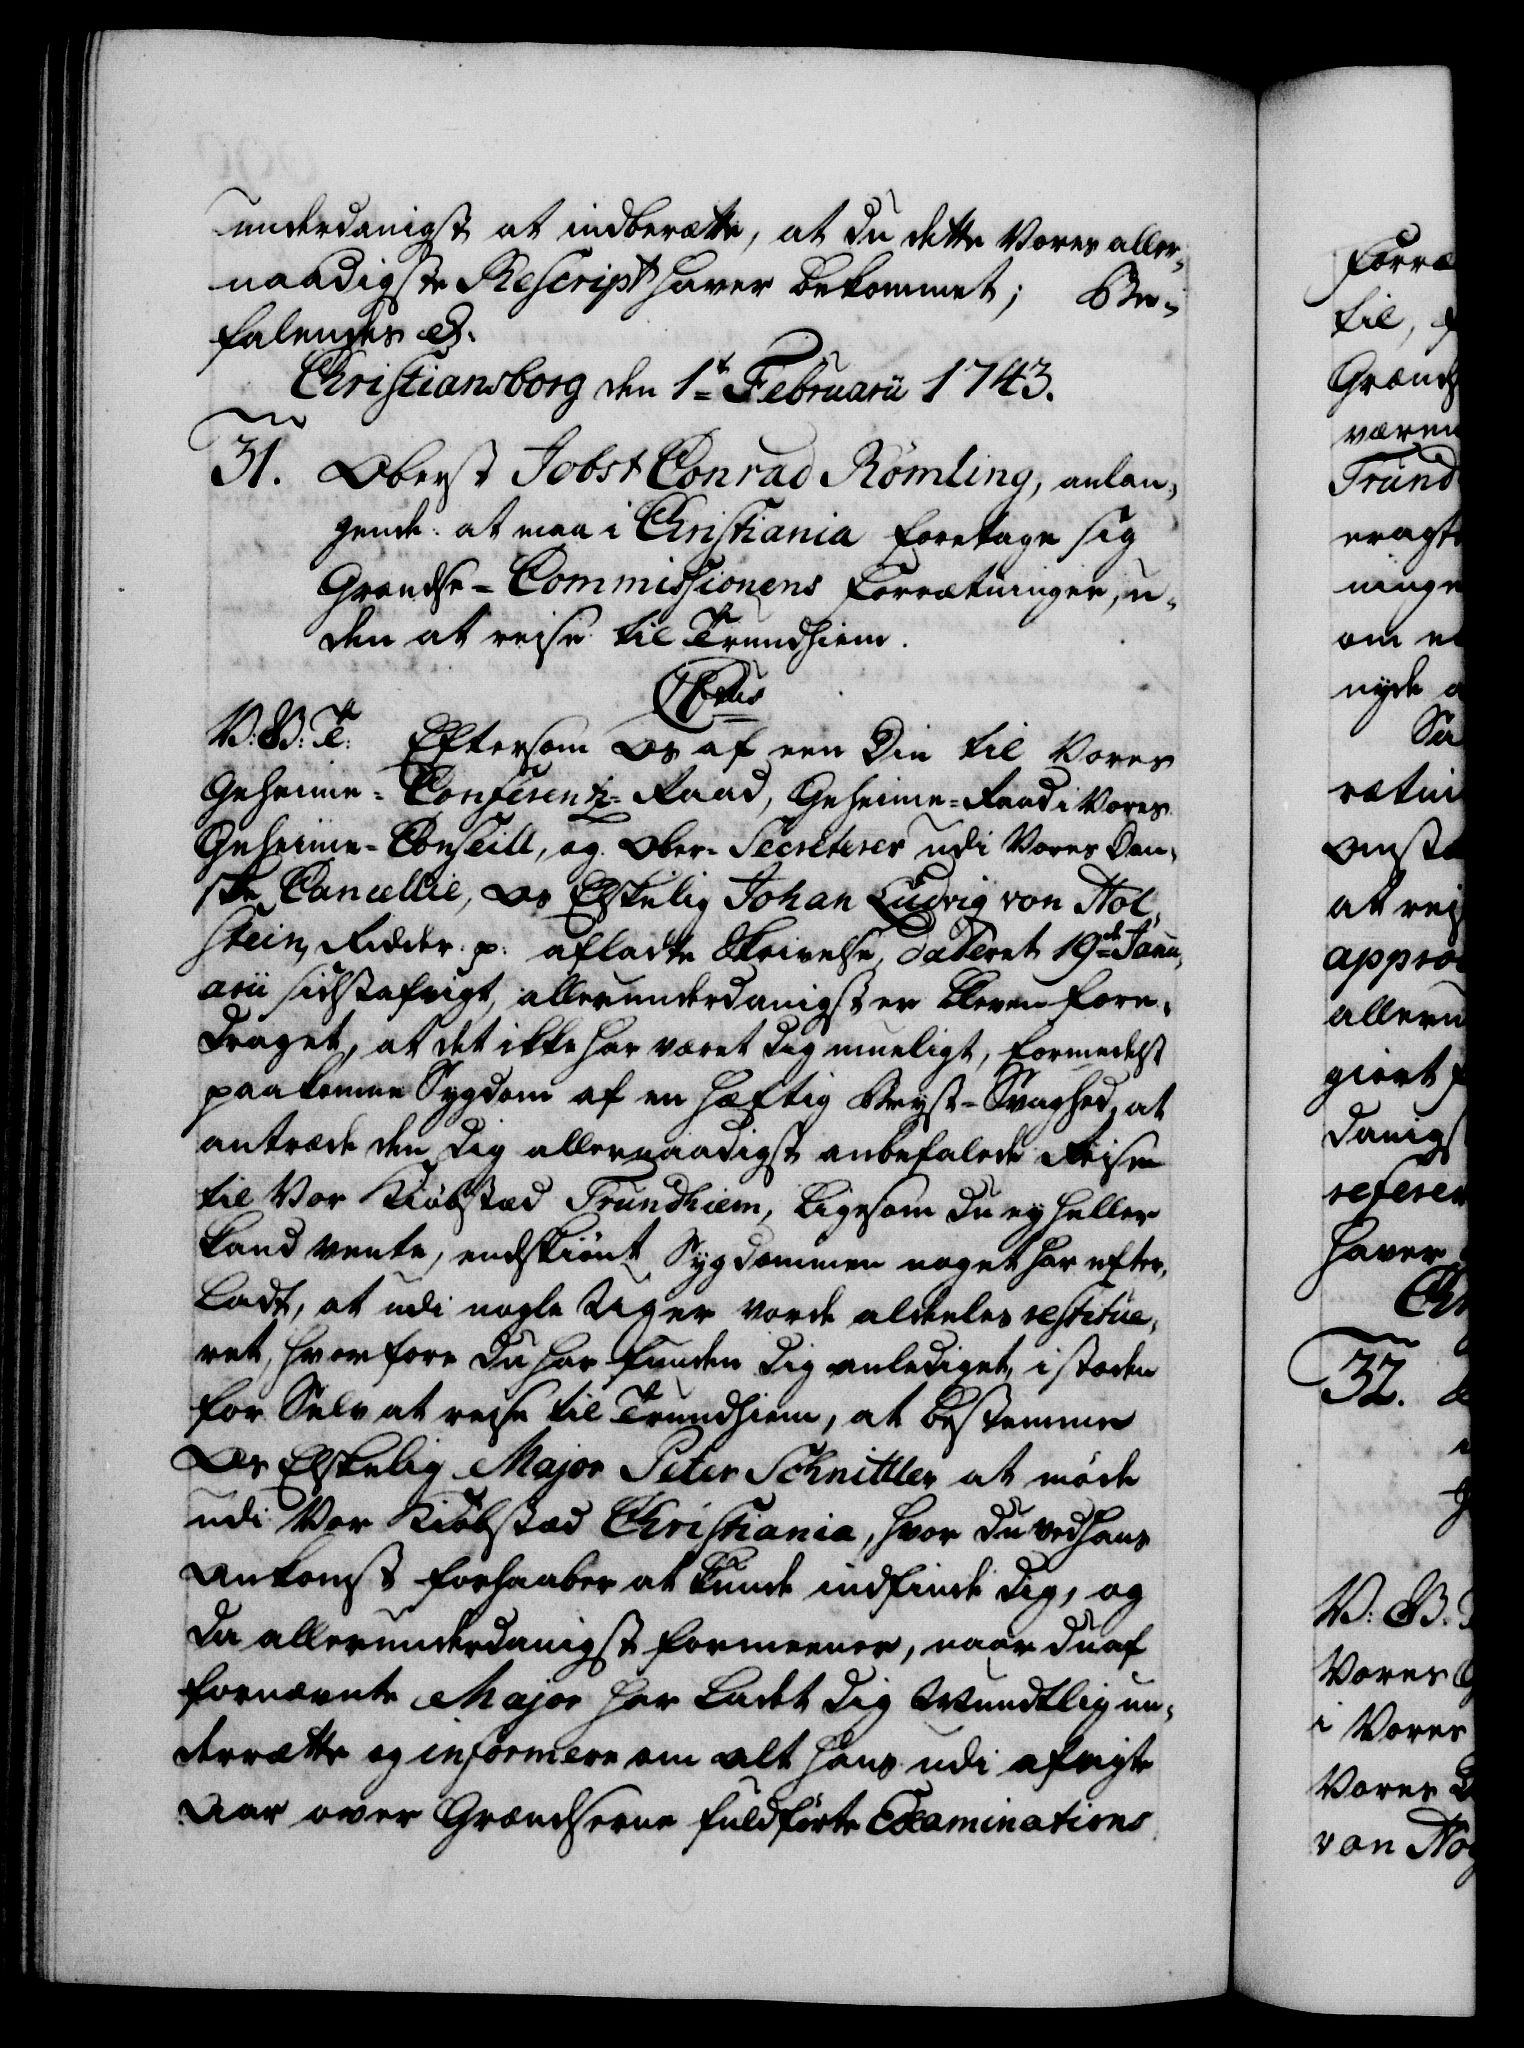 underdanigst at indberætte, at du dette Vores aller-
naadigste Rescript haver bekommet; Be-
falendes &.
Christiansborg den 1t Februarii 1743.
31. Oberst Jobst Conrad Römling, anlan-
gende: at maa i Christiania foretage sig
Grændse-Commissionens Forrætninger, u-
den at reise til Trundhiem.
V: G: T: Eftersom Os af een Din til Vores
Geheime-Conferentz-Raad, Geheime-Raad i Vores
Geheime-Conseill, og Ober-Secreterer udi Vores Dan-
ske Cancellie, Os Elskelig Johan Ludvig von Hol-
stein, Ridder p: afladte Skrivelse, dateret 19de Janu-
arii sidstafvigt, allerunderdanigst er bleven fore-
draget, at det ikke har været dig mueligt, formedelst
paakomne Sygdom af en hæftig Bryst-Svaghed, at
antræde den dig allernaadigst anbefalede Reise
til Vor Kiøbstæd Trundhiem, ligesom du ey heller
kand vente, endskiønt Sygdommen noget har efter-
ladt, at udi nogle Uger vorde aldeeles restitue-
ret, hvorfore du har funden dig anlediget, i stæden
for Selv at reise til Trundhiem, at bestemme
Os Elskelig Major Peter Schnittler at møde
udi Vor Kiøbstæd Christiania, hvor du ved hans
Ankomst forhaaber at kunde indfinde dig, og
da allerunderdanigst formeener, naar du af
fornævnte Major har ladet dig Mundtlig un-
derrætte og informere om alt hans udi afvigte
Aar over Grændserne fuldførte Examinations
Forræ
til, f
Grænds
væren
Trund
eragt
ninge
om e
nyde a
Sa
rætni
omsta
at reis
appro
alleru
giort f
danigs
referer
haver
Chr
32.
V: G: T
Vores G
i Vores
Vores D
von Ho